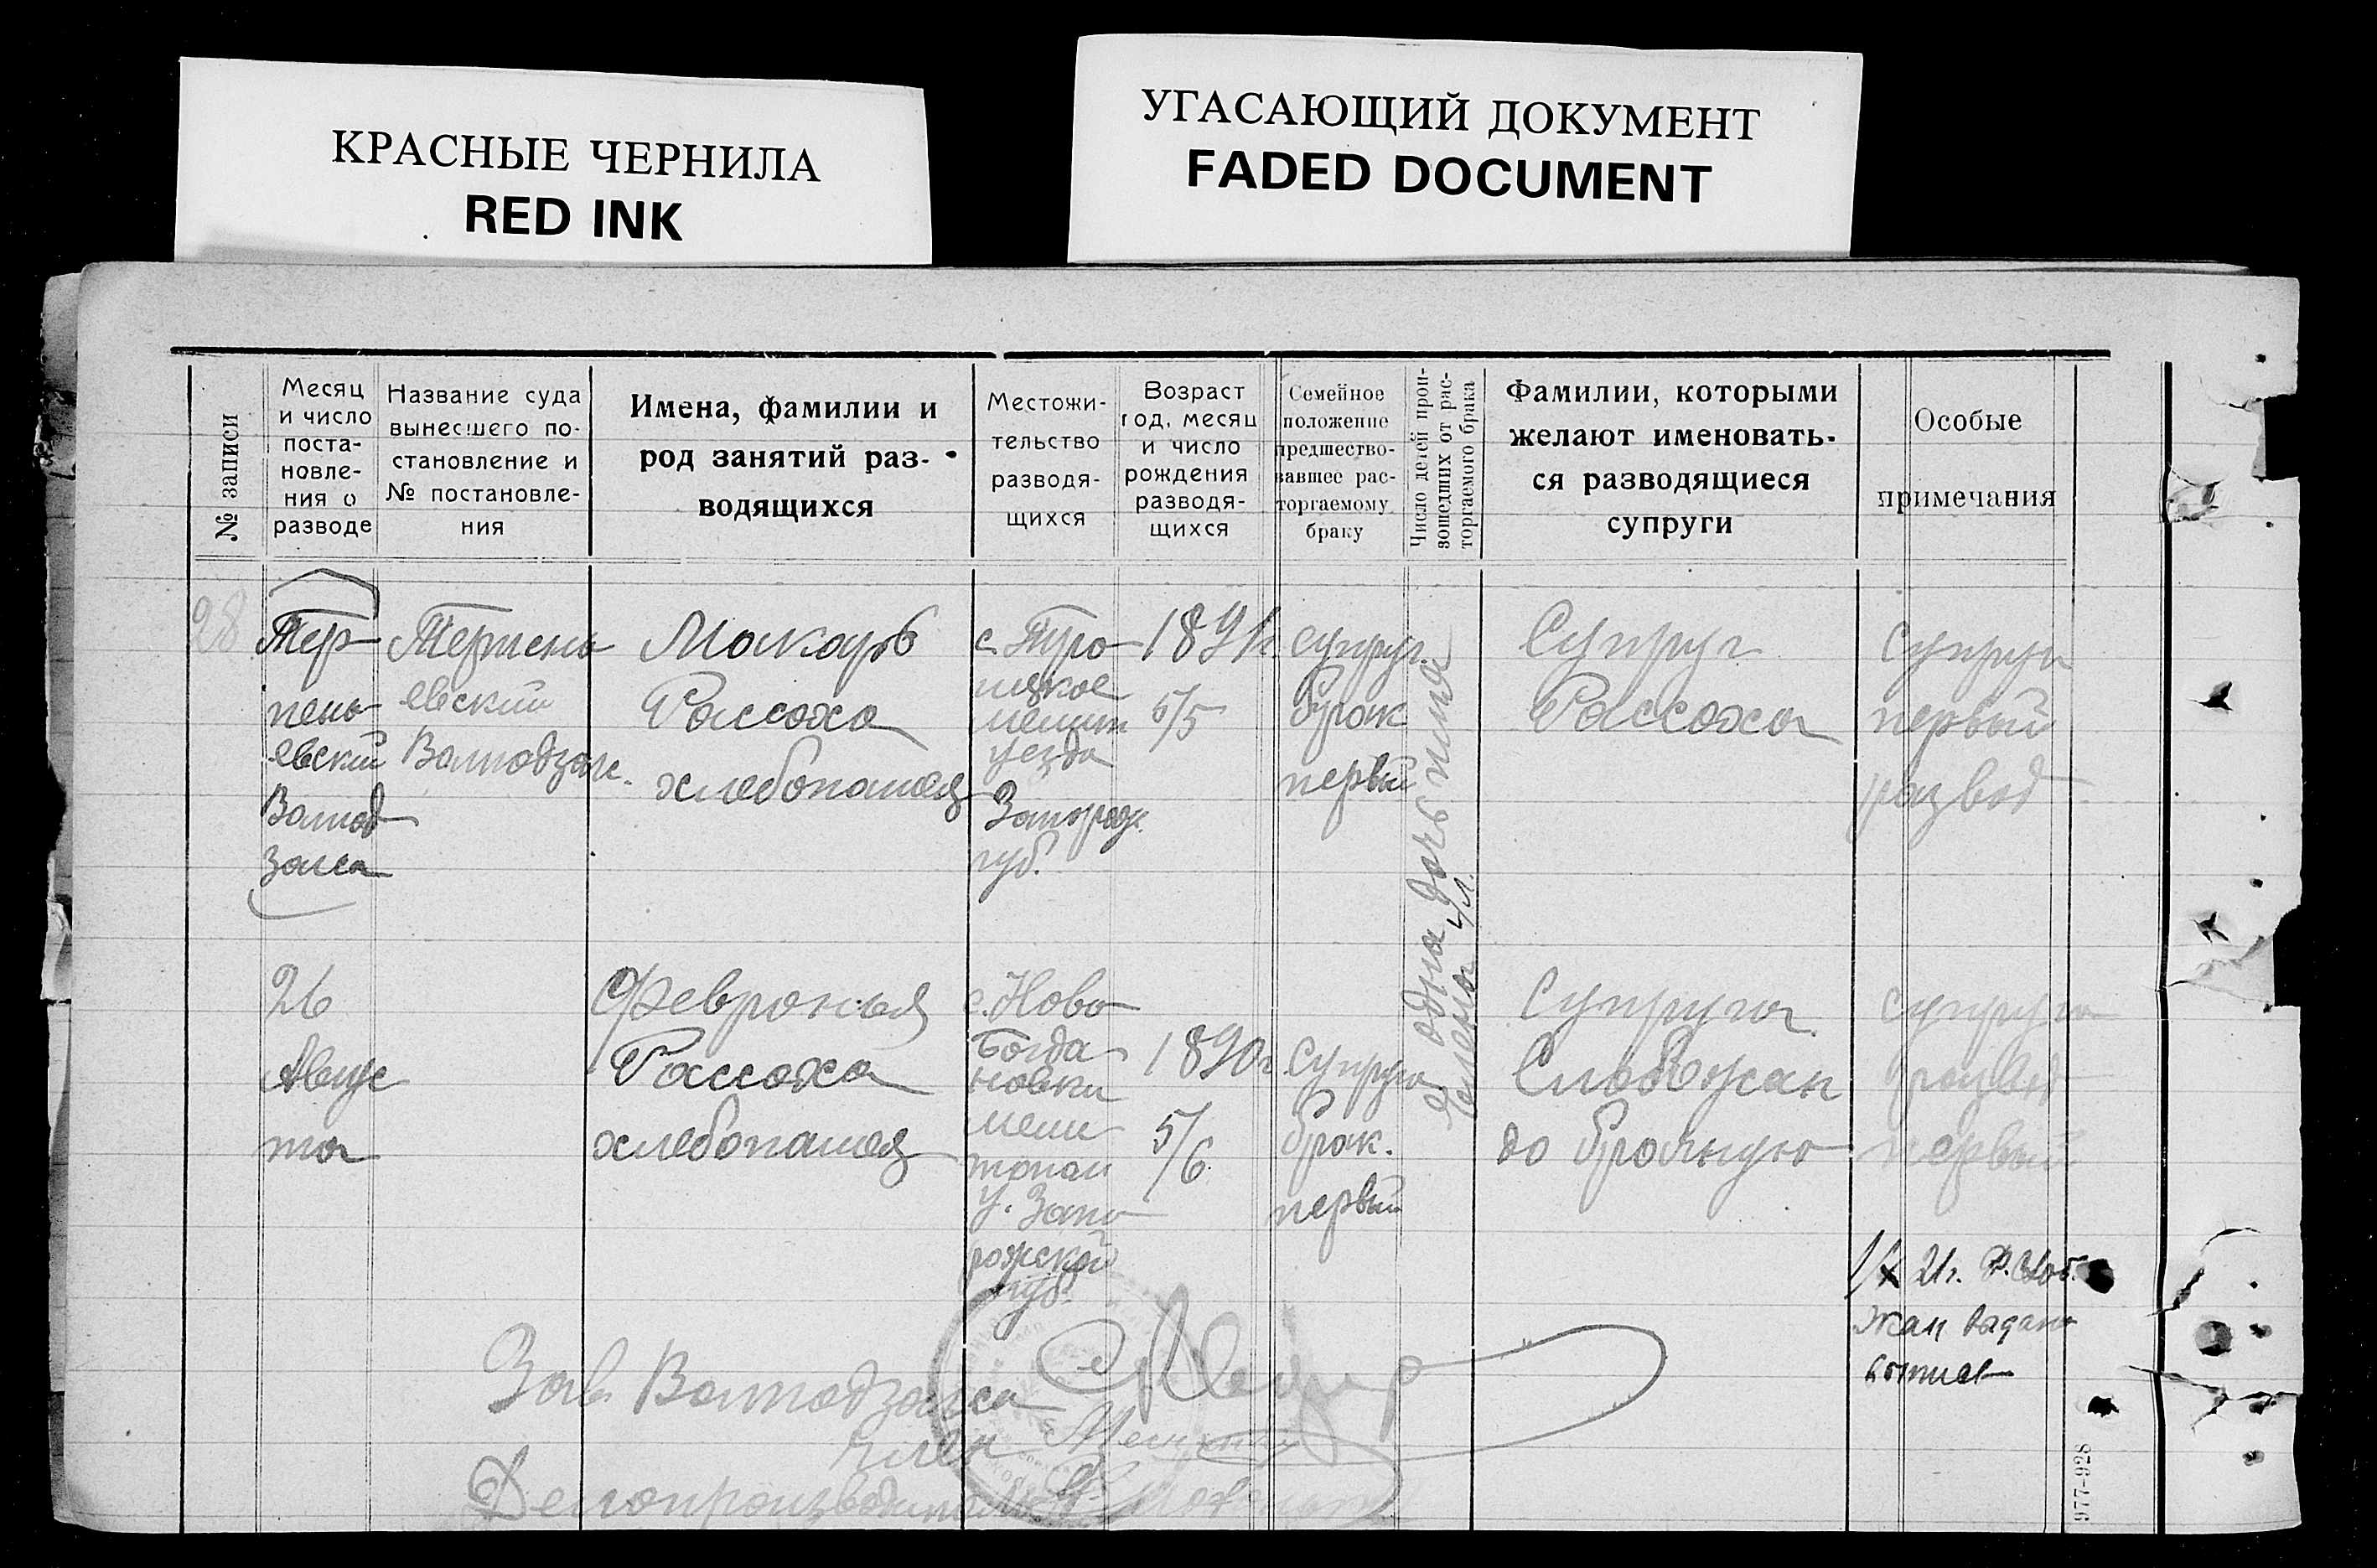 КРАСНЫЕ ЧЕРНИЛА
RED INK
УГАСАЮЩИЙ ДОКУМЕНТ
FADED DOCUMENT
№ записи
Месяц
и число
поста-
новле-
ния о
разводе
Название суда
вынесшего по-
становление и
№ постановле-
ния
Имена, фамилии и
род занятий раз-
водящихся
Местожи-
тельство
разводя-
щихся
Возраст
год, месяц
и число
рождения
разводя-
щихся
Семейное
положение
предшество-
вавшее рас-
торгаемому
браку
Число детей прои-
зошедших от рас-
торгаемого брака
Фамилии, которыми
желают именовать-
ся разводящиеся
супруги
Особые
примечания
28
Тер-
пень-
евский
Волпод
загса
Терпень
евский
Волподзаг.
Макар
Рассоха
хлебопашец
с. Тро
ицкое
мелит
уезда
Запорож.
губ.
1891г.
5/5
супруг.
брак
первый
одна дочь
Супруг
Рассоха
супруг
первый
развод
26
Авгус
та
Февронья
Рассоха
хлебопашец
с. Ново
Богда
новки
мели
топол
у. Запо
рожской
губ.
1890г
5/6
Супруга
брак.
первый
Супруга
Слобожан
до брачную
супруга
развод
первый
21г.
жан
Зав Волподзагса
член
Делопроизводитель
977-928